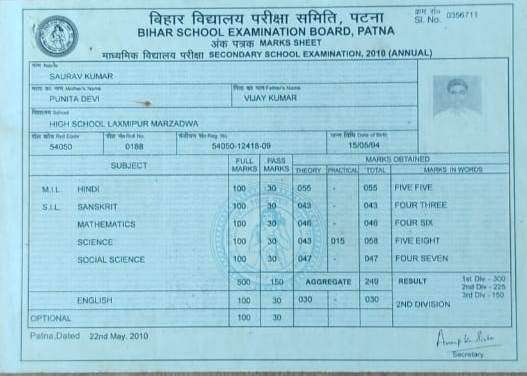 बिहार विद्यालय परीक्षा समिति, पटना
क्रम सं० Sl. No. 0356711
BIHAR SCHOOL EXAMINATION BOARD, PATNA
अंक पत्रक MARKS SHEET
माध्यमिक विद्यालय परीक्षा SECONDARY SCHOOL EXAMINATION, 2010 (ANNUAL)
नाम Name
SAURAV KUMAR
माता का नाम Mother's Name पिता का नाम Father's Name
PUNITA DEVI VIJAY KUMAR
विद्यालय School
HIGH SCHOOL LAXMIPUR MARZADWA
रौल कोड Roll Code रौल नं० Roll No. पंजीयन सं० Reg. No. जन्म तिथि Date of Birth
54050 0188 54050-12418-09 15/05/94
SUBJECT FULL MARKS PASS MARKS MARKS OBTAINED
THEORY PRACTICAL TOTAL MARKS IN WORDS
M.I.L. HINDI 100 30 055 - 055 FIVE FIVE
S.I.L. SANSKRIT 100 30 043 - 043 FOUR THREE
MATHEMATICS 100 30 046 - 046 FOUR SIX
SCIENCE 100 30 043 015 058 FIVE EIGHT
SOCIAL SCIENCE 100 30 047 - 047 FOUR SEVEN
500 150 AGGREGATE 249 RESULT 1st Div - 300
2nd Div - 225
3rd Div - 150
ENGLISH 100 30 030 - 030 2ND DIVISION
OPTIONAL 100 30
Patna,Dated 22nd May, 2010
Secretary